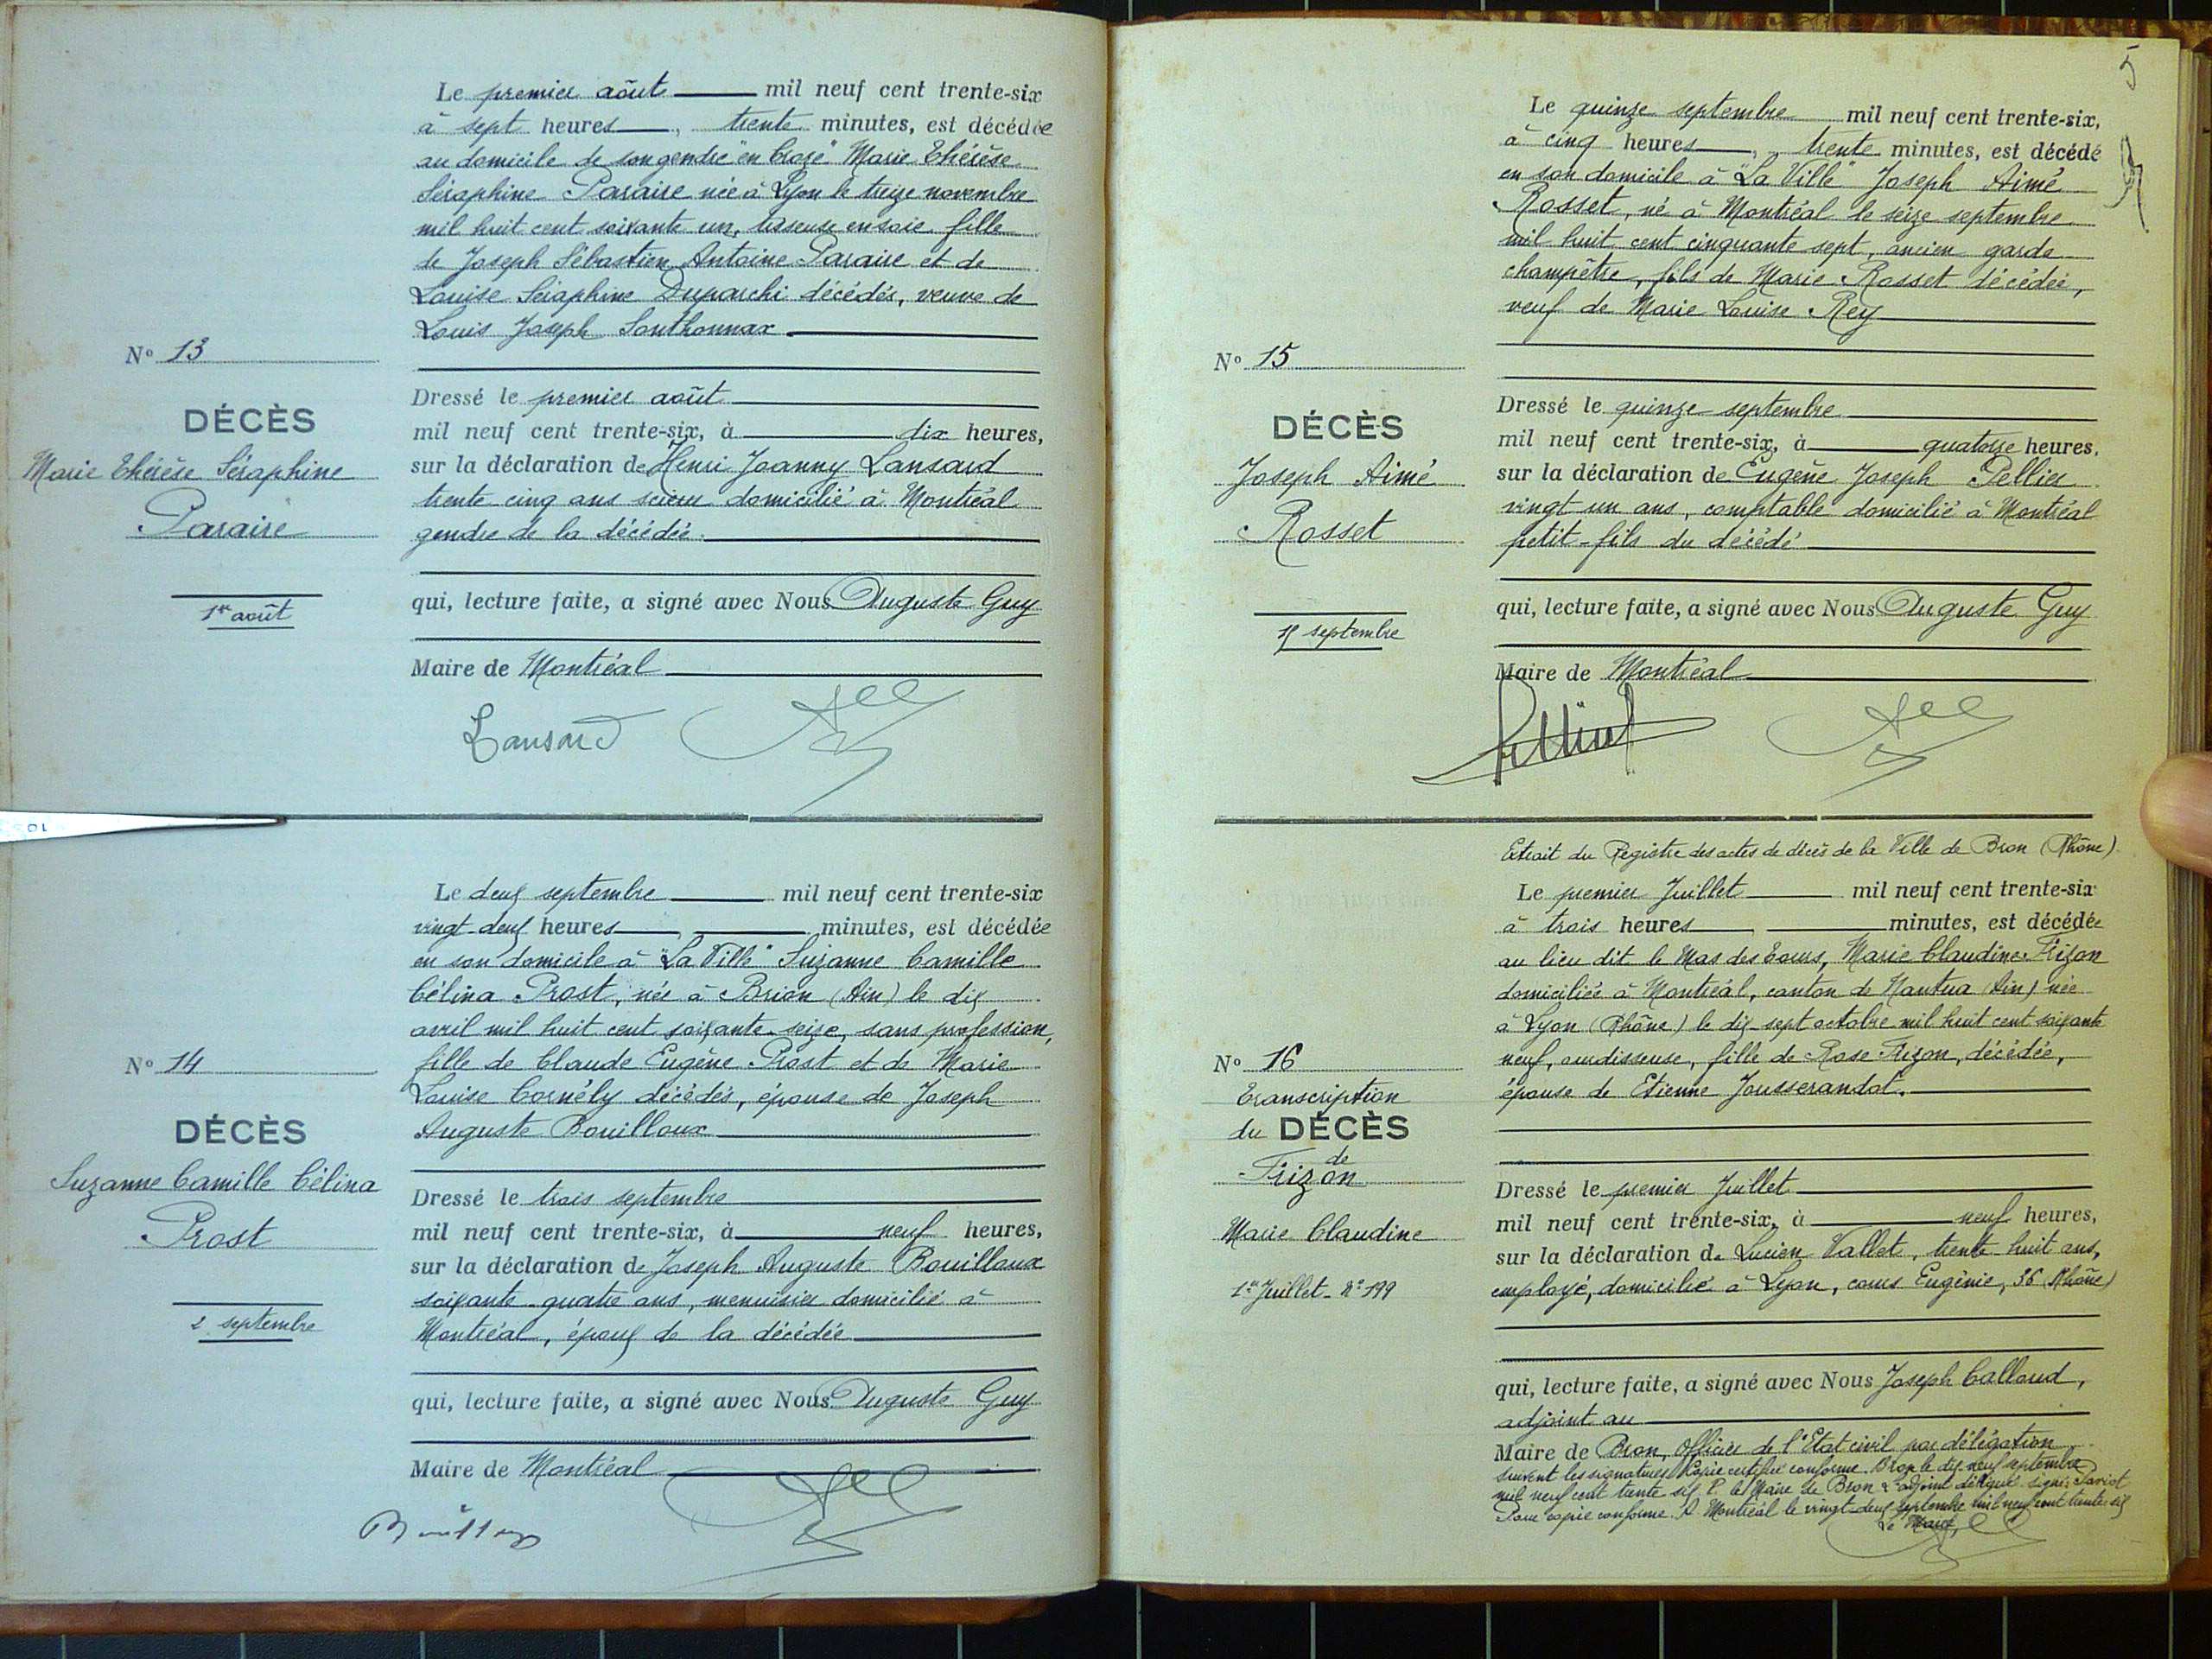 Le premier août mil neuf cent trente-six
à sept heures, trente minutes, est décédée
au domicile de son gendre "en Croze" Marie Thérèse
Séraphine Paraire née à Lyon le treize novembre
mil huit cent soixante un, tisseuse en soie fille
de Joseph Sébastien Antoine Paraire et de
Louise Séraphine Duparchi décédés, veuve de
Louis Joseph Sonthonnax
N° 13
DÉCÈS
Marie Thérèse Séraphine
Paraire
1er août
Dressé le premier août
mil neuf cent trente-six, à dix heures,
sur la déclaration de Henri Joanny Lansard
trente cinq ans scieur domicilié à Montréal
gendre de la décédée.
qui, lecture faite, a signé avec Nous Auguste Guy
Maire de Montréal
Lansard
Le deux septembre mil neuf cent trente-six
vingt-deux heures, minutes, est décédée
en son domicile à "La Ville" Suzanne Camille
Célina Prost, née à Brion (Ain) le dix
avril mil huit cent soixante-seize, sans profession,
fille de Claude Eugène Prost et de Marie
Louise Cornély décédés, épouse de Joseph
Auguste Bouilloux
N° 14
DÉCÈS
Suzanne Camille Célina
Prost
2 septembre
Dressé le trois septembre
mil neuf cent trente-six, à neuf heures,
sur la déclaration de Joseph Auguste Bouilloux
soixante-quatre ans, menuisier domicilié à
Montréal, époux de la décédée
qui, lecture faite, a signé avec Nous Auguste Guy
Maire de Montréal
5
Le quinze septembre mil neuf cent trente-six,
à cinq heures, trente minutes, est décédé
en son domicile à "La Ville" Joseph Aimé
Rosset, né à Montréal le seize septembre
mil huit cent cinquante sept, ancien garde
champêtre, fils de Marie Rosset décédée,
veuf de Marie Louise Rey
N° 15
DÉCÈS
Joseph Aimé
Rosset
15 septembre
Dressé le quinze septembre
mil neuf cent trente-six, à quatorze heures,
sur la déclaration de Eugène Joseph Pellier
vingt un ans, comptable domicilié à Montréal
petit-fils du décédé
qui, lecture faite, a signé avec Nous Auguste Guy
Maire de Montréal
Extrait du Registre des actes de décès de la Ville de Bron (Rhône)
Le premier Juillet mil neuf cent trente-six
à trois heures, minutes, est décédée
au lieu dit le Mas des Tours, Marie Claudine Frizon
domiciliée à Montréal, canton de Nantua (Ain) née
à Lyon (Rhône) le dix-sept octobre mil huit cent soixante
neuf, ourdisseuse, fille de Rose Frizon, décédée,
épouse de Etienne Jousserandot.
N° 16
Transcription
du DÉCÈS
de
Frizon
Marie Claudine
1er Juillet - N° 199
Dressé le premier Juillet
mil neuf cent trente-six, à neuf heures,
sur la déclaration de Lucien Vallet, trente-huit ans,
employé, domicilié à Lyon, cours Eugénie, 36 (Rhône)
qui, lecture faite, a signé avec Nous Joseph Calloud,
adjoint au
Maire de Bron, Officier de l'Etat civil par délégation
Suivent les signatures. Copie certifiée conforme. Bron le dix neuf septembre
mil neuf cent trente six. P. le Maire de Bron L'adjoint délégué signé: Pariot
Pour copie conforme. A Montréal le vingt-deux septembre mil neuf cent trente-six
Le Maire,